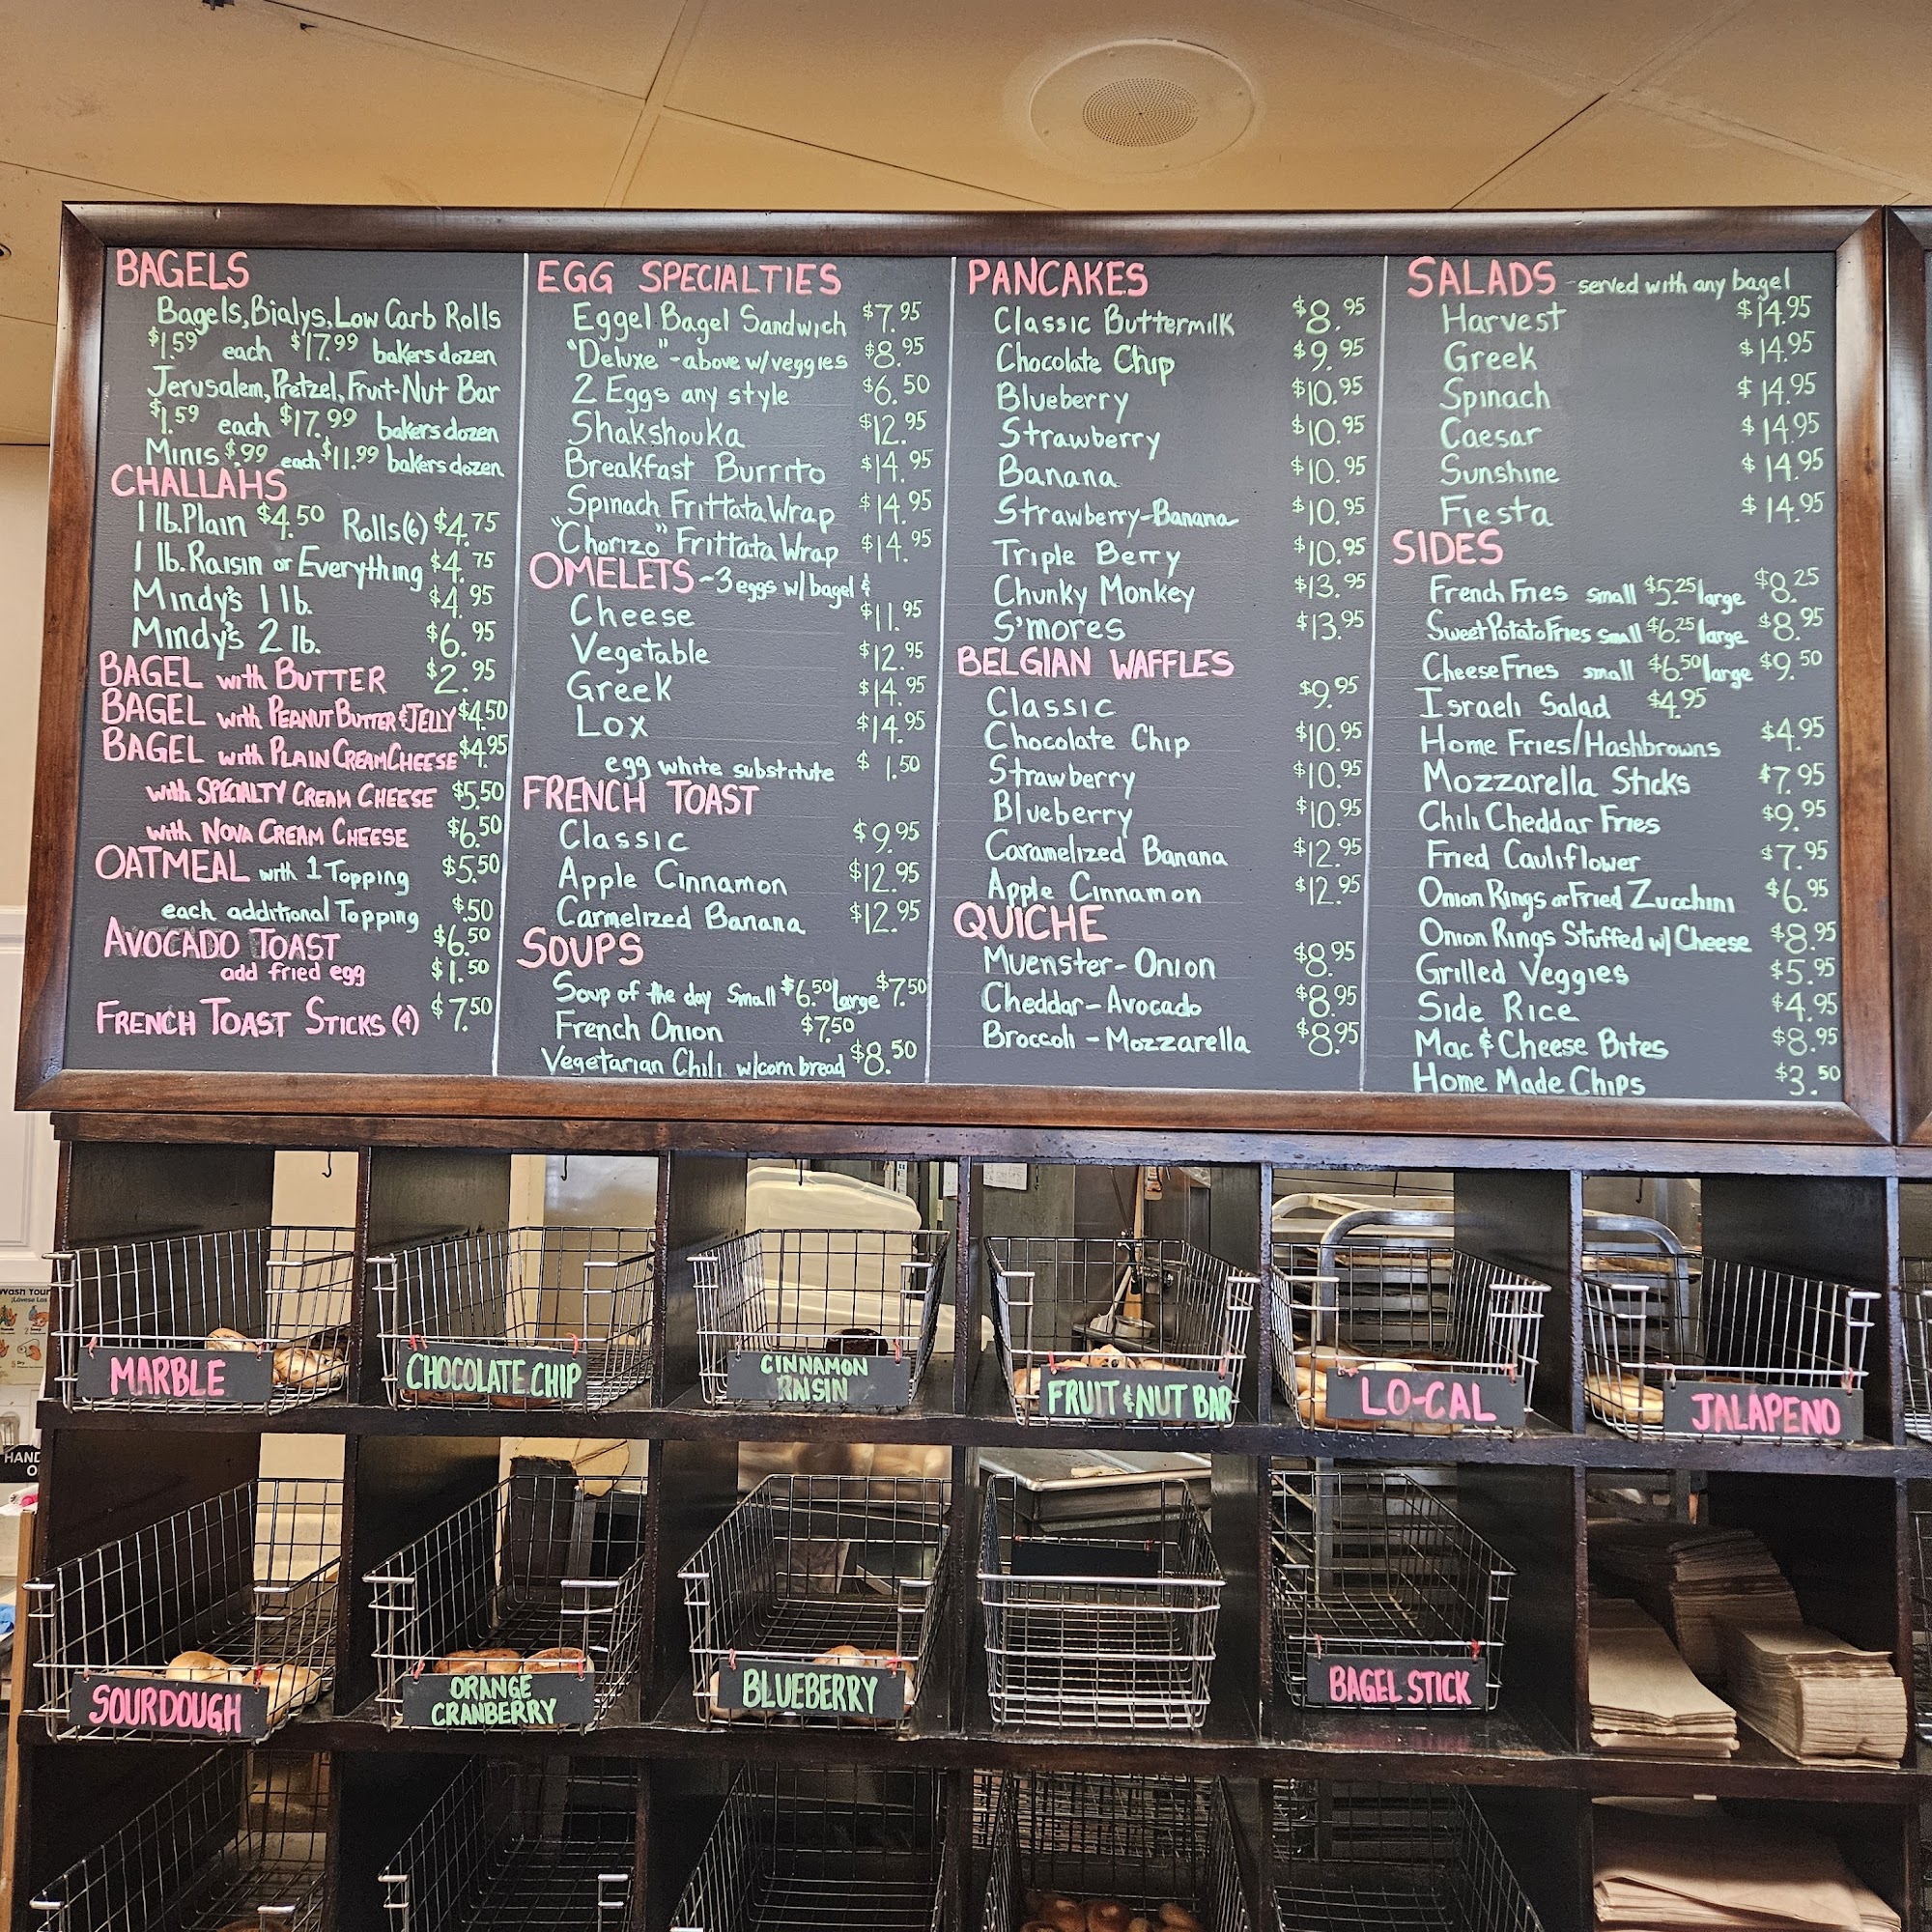 BAGELS
Bagels, Bialys, Low Carb Rolls
$1.59 each $17.99 bakers dozen
Jerusalem, Pretzel, Fruit-Nut Bar
$1.59 each $17.99 bakers dozen
Minis $.99 each $11.99 bakers dozen
CHALLAHS
1 lb. Plain $4.50 Rolls (6) $4.75
1 lb. Raisin or Everything $4.75
Mindy's 1 lb. $4.95
Mindy's 2 lb. $6.95
BAGEL with BUTTER $2.95
BAGEL with PEANUT BUTTER & JELLY $4.50
BAGEL with PLAIN CREAM CHEESE $4.95
with SPECIALTY CREAM CHEESE $5.50
with NOVA CREAM CHEESE $6.50
OATMEAL with 1 Topping $5.50
each additional Topping $.50
AVOCADO TOAST $6.50
add fried egg $1.50
FRENCH TOAST STICKS (4) $7.50
EGG SPECIALTIES
Eggel Bagel Sandwich $7.95
"Deluxe" - above w/veggies $8.95
2 Eggs any style $6.50
Shakshouka $12.95
Breakfast Burrito $14.95
Spinach Frittata Wrap $14.95
"Chorizo" Frittata Wrap $14.95
OMELETS ~3 eggs w/ bagel &
Cheese $11.95
Vegetable $12.95
Greek $14.95
Lox $14.95
egg white substitute $1.50
FRENCH TOAST
Classic $9.95
Apple Cinnamon $12.95
Carmelized Banana $12.95
SOUPS
Soup of the day Small $6.50 Large $7.50
French Onion $7.50
Vegetarian Chili w/corn bread $8.50
PANCAKES
Classic Buttermilk $8.95
Chocolate Chip $9.95
Blueberry $10.95
Strawberry $10.95
Banana $10.95
Strawberry-Banana $10.95
Triple Berry $10.95
Chunky Monkey $13.95
S'mores $13.95
BELGIAN WAFFLES
Classic $9.95
Chocolate Chip $10.95
Strawberry $10.95
Blueberry $10.95
Caramelized Banana $12.95
Apple Cinnamon $12.95
QUICHE
Muenster-Onion $8.95
Cheddar-Avocado $8.95
Broccoli-Mozzarella $8.95
SALADS - served with any bagel
Harvest $14.95
Greek $14.95
Spinach $14.95
Caesar $14.95
Sunshine $14.95
Fiesta $14.95
SIDES
French Fries small $5.25 large $8.25
Sweet Potato Fries small $6.25 large $8.95
Cheese Fries small $6.50 large $9.50
Israeli Salad $4.95
Home Fries/Hashbrowns $4.95
Mozzarella Sticks $7.95
Chili Cheddar Fries $9.95
Fried Cauliflower $7.95
Onion Rings or Fried Zucchini $6.95
Onion Rings Stuffed w/ Cheese $8.95
Grilled Veggies $5.95
Side Rice $4.95
Mac & Cheese Bites $8.95
Home Made Chips $3.50
Wash Your
MARBLE
CHOCOLATE CHIP
CINNAMON
RAISIN
FRUIT & NUT BAR
LO-CAL
JALAPENO
HAND
SOURDOUGH
ORANGE
CRANBERRY
BLUEBERRY
BAGEL STICK